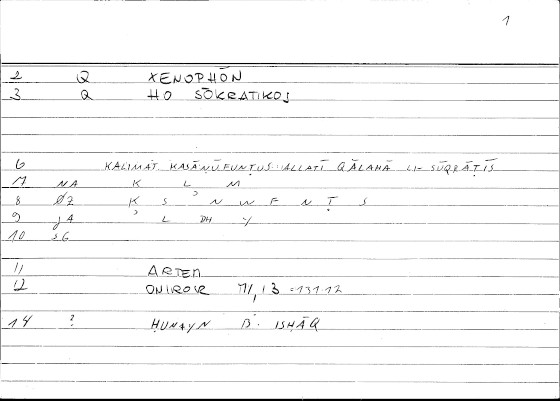 1
2 Q XENOPHŌN
3 Q HO SŌKRATIKOS
6 KALIMĀT KASĀNŪFUNṬUS ALLATĪ QĀLAHĀ LI-SŪQRĀṬĪS
7 NA K L M
8 ØZ K S ʾ N W F N Ṭ S
9 JA ʾ L DH Y
10 SG
11 ARTEM
12 ONIROKR
14 ? ḤUNAYN B. ISḤĀQ